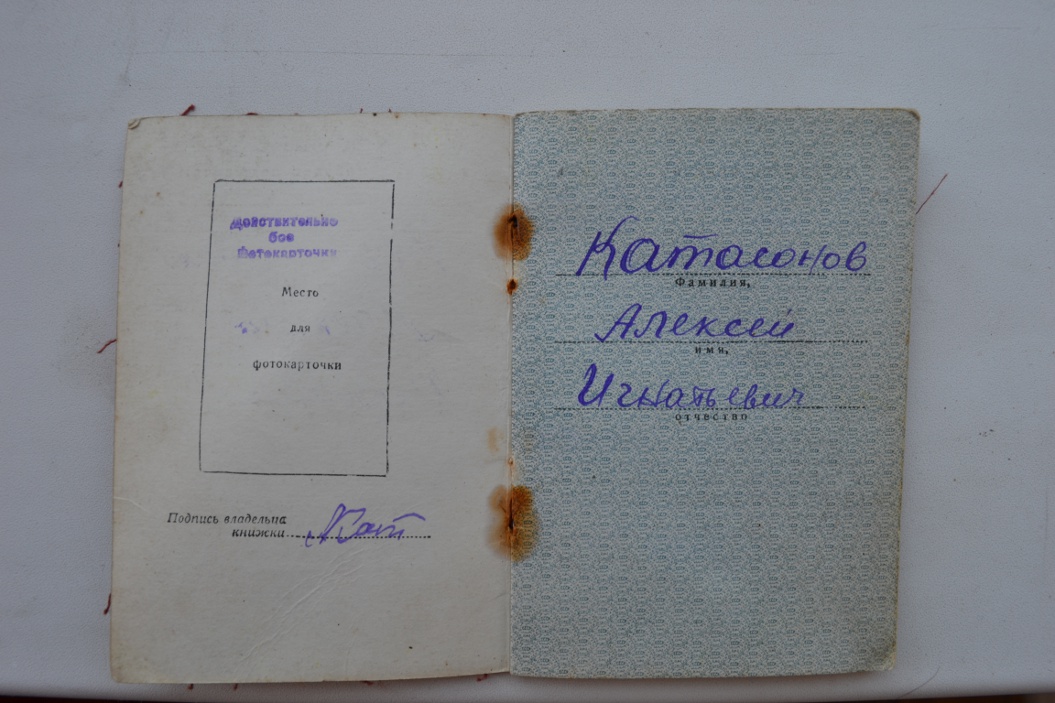 Действительно
без
фотокарточки
Место
для
фотокарточки
Подпись владельца
книжки
Катасонов
Фамилия,
Алексей
имя,
Игнатьевич
отчество